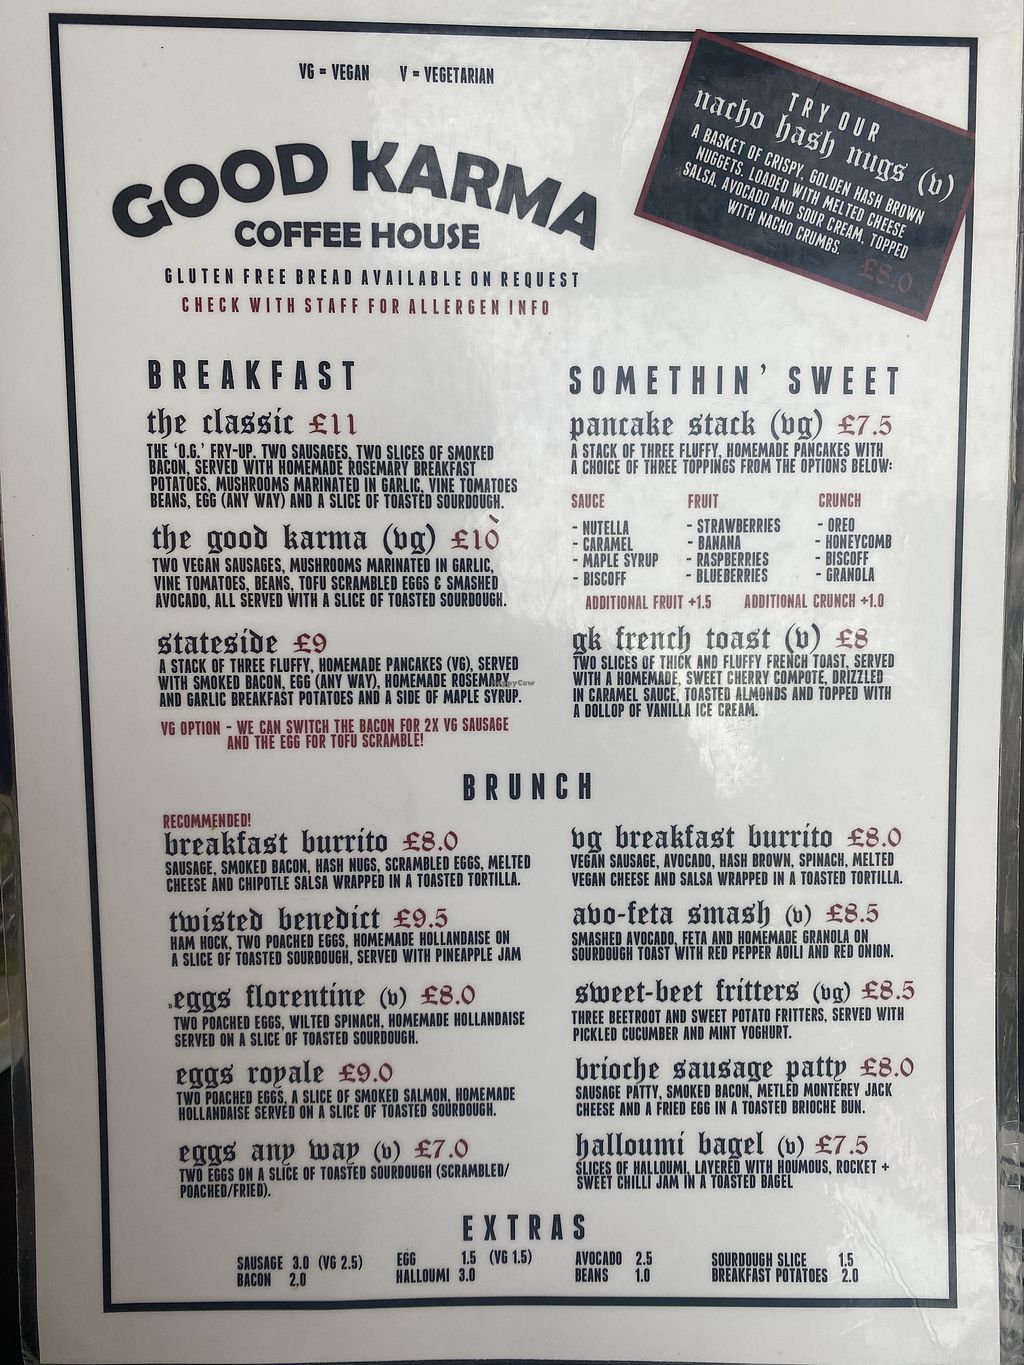 VG = VEGAN V = VEGETARIAN
TRY OUR
nacho hash nugs (v)
A BASKET OF CRISPY, GOLDEN HASH BROWN
NUGGETS, LOADED WITH MELTED CHEESE
SALSA, AVOCADO AND SOUR CREAM, TOPPED
WITH NACHO CRUMBS.
£8.0
GOOD KARMA
COFFEE HOUSE
GLUTEN FREE BREAD AVAILABLE ON REQUEST
CHECK WITH STAFF FOR ALLERGEN INFO
BREAKFAST
the classic £11
THE 'O.G.' FRY-UP. TWO SAUSAGES, TWO SLICES OF SMOKED
BACON, SERVED WITH HOMEMADE ROSEMARY BREAKFAST
POTATOES, MUSHROOMS MARINATED IN GARLIC, VINE TOMATOES
BEANS, EGG (ANY WAY) AND A SLICE OF TOASTED SOURDOUGH.
the good karma (vg) £10
TWO VEGAN SAUSAGES, MUSHROOMS MARINATED IN GARLIC,
VINE TOMATOES, BEANS, TOFU SCRAMBLED EGGS & SMASHED
AVOCADO, ALL SERVED WITH A SLICE OF TOASTED SOURDOUGH.
stateside £9
A STACK OF THREE FLUFFY, HOMEMADE PANCAKES (VG), SERVED
WITH SMOKED BACON, EGG (ANY WAY), HOMEMADE ROSEMARY
AND GARLIC BREAKFAST POTATOES AND A SIDE OF MAPLE SYRUP.
VG OPTION - WE CAN SWITCH THE BACON FOR 2X VG SAUSAGE
AND THE EGG FOR TOFU SCRAMBLE!
SOMETHIN' SWEET
pancake stack (vg) £7.5
A STACK OF THREE FLUFFY, HOMEMADE PANCAKES WITH
A CHOICE OF THREE TOPPINGS FROM THE OPTIONS BELOW:
SAUCE FRUIT CRUNCH
- NUTELLA - STRAWBERRIES - OREO
- CARAMEL - BANANA - HONEYCOMB
- MAPLE SYRUP - RASPBERRIES - BISCOFF
- BISCOFF - BLUEBERRIES - GRANOLA
ADDITIONAL FRUIT +1.5 ADDITIONAL CRUNCH +1.0
gk french toast (v) £8
TWO SLICES OF THICK AND FLUFFY FRENCH TOAST, SERVED
WITH A HOMEMADE, SWEET CHERRY COMPOTE, DRIZZLED
IN CARAMEL SAUCE, TOASTED ALMONDS AND TOPPED WITH
A DOLLOP OF VANILLA ICE CREAM.
HappyCow
BRUNCH
RECOMMENDED!
breakfast burrito £8.0
SAUSAGE, SMOKED BACON, HASH NUGS, SCRAMBLED EGGS, MELTED
CHEESE AND CHIPOTLE SALSA WRAPPED IN A TOASTED TORTILLA.
twisted benedict £9.5
HAM HOCK, TWO POACHED EGGS, HOMEMADE HOLLANDAISE ON
A SLICE OF TOASTED SOURDOUGH, SERVED WITH PINEAPPLE JAM
eggs florentine (v) £8.0
TWO POACHED EGGS, WILTED SPINACH, HOMEMADE HOLLANDAISE
SERVED ON A SLICE OF TOASTED SOURDOUGH.
eggs royale £9.0
TWO POACHED EGGS, A SLICE OF SMOKED SALMON, HOMEMADE
HOLLANDAISE SERVED ON A SLICE OF TOASTED SOURDOUGH.
eggs any way (v) £7.0
TWO EGGS ON A SLICE OF TOASTED SOURDOUGH (SCRAMBLED/
POACHED/FRIED).
vg breakfast burrito £8.0
VEGAN SAUSAGE, AVOCADO, HASH BROWN, SPINACH, MELTED
VEGAN CHEESE AND SALSA WRAPPED IN A TOASTED TORTILLA.
avo-feta smash (v) £8.5
SMASHED AVOCADO, FETA AND HOMEMADE GRANOLA ON
SOURDOUGH TOAST WITH RED PEPPER AOILI AND RED ONION.
sweet-beet fritters (vg) £8.5
THREE BEETROOT AND SWEET POTATO FRITTERS, SERVED WITH
PICKLED CUCUMBER AND MINT YOGHURT.
brioche sausage patty £8.0
SAUSAGE PATTY, SMOKED BACON, METLED MONTEREY JACK
CHEESE AND A FRIED EGG IN A TOASTED BRIOCHE BUN.
halloumi bagel (v) £7.5
SLICES OF HALLOUMI, LAYERED WITH HOUMOUS, ROCKET +
SWEET CHILLI JAM IN A TOASTED BAGEL
EXTRAS
SAUSAGE 3.0 (VG 2.5) EGG 1.5 (VG 1.5) AVOCADO 2.5 SOURDOUGH SLICE 1.5
BACON 2.0 HALLOUMI 3.0 BEANS 1.0 BREAKFAST POTATOES 2.0